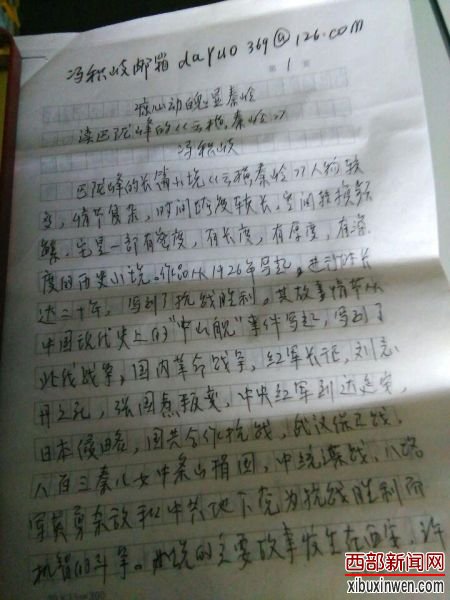 冯积岐邮箱 daruo369@126.com
第 1
惊心动魄显秦岭
读巴陇峰的《云横秦岭》
冯积岐
巴陇峰的长篇小说《云横秦岭》人物较
多，情节复杂，时间跨度较长，空间转换频
繁，它是一部有宽度，有长度，有厚度，有深
度的历史小说。作品从1926年写起，进行时长
达二十年，写到了抗战胜利。其故事情节从
中国现代史上的“中山舰”事件写起，写到了
北伐战争，国内革命战争，红军长征，刘志
丹之死，张国焘叛变，中央红军到达延安，
日本侵略，国共合作抗战，武汉保卫战，
八百三秦儿女中条山捐国，中统谍战，八路
军英勇杀敌和中共地下党为抗战胜利而
机智的斗争。小说的主要故事发生在西安，许
西部新闻网
xibuxinwen.com